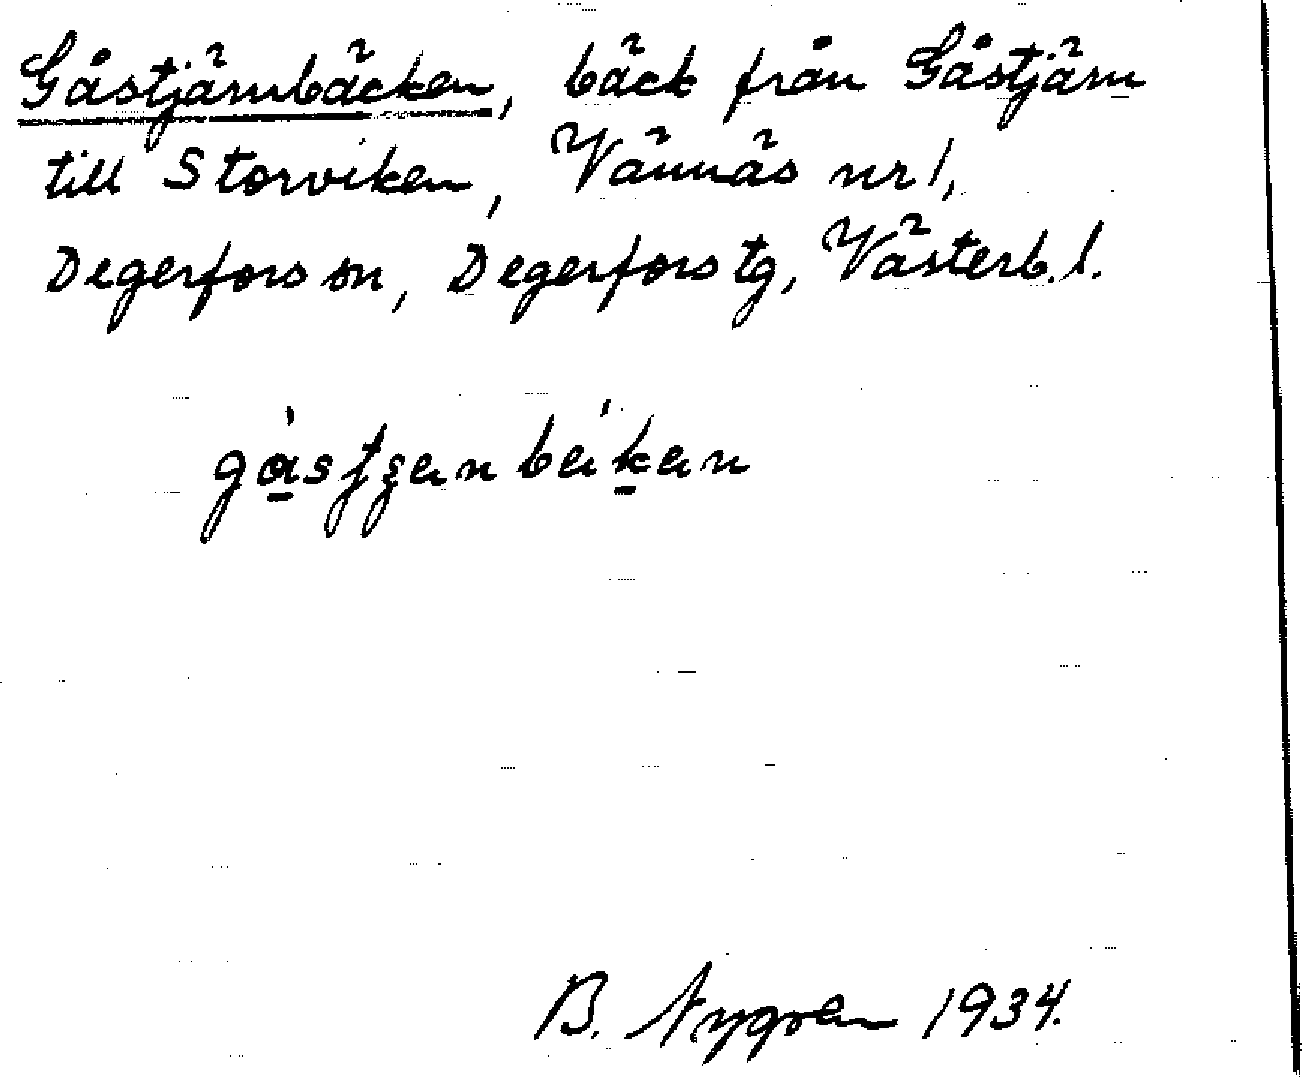 Gåstjärnbäcken, bäck från Gåstjärn
till Storviken, Vännäs nr 1,
Degerfors sn, Degerfors tg, Västerb. l.
B. Nygren 1934.